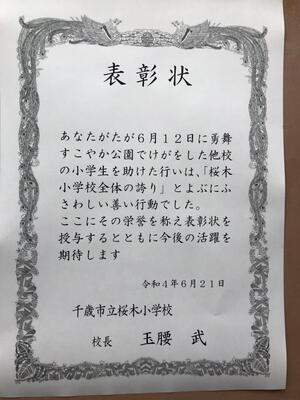 表彰状
あなたがたが６月１２日に勇舞
すこやか公園でけがをした他校
の小学生を助けた行いは、「桜木
小学校全体の誇り」とよぶにふ
さわしい善い行動でした。
ここにその栄誉を称え表彰状を
授与するとともに今後の活躍を
期待します
令和４年６月２１日
千歳市立桜木小学校
校長 玉腰 武